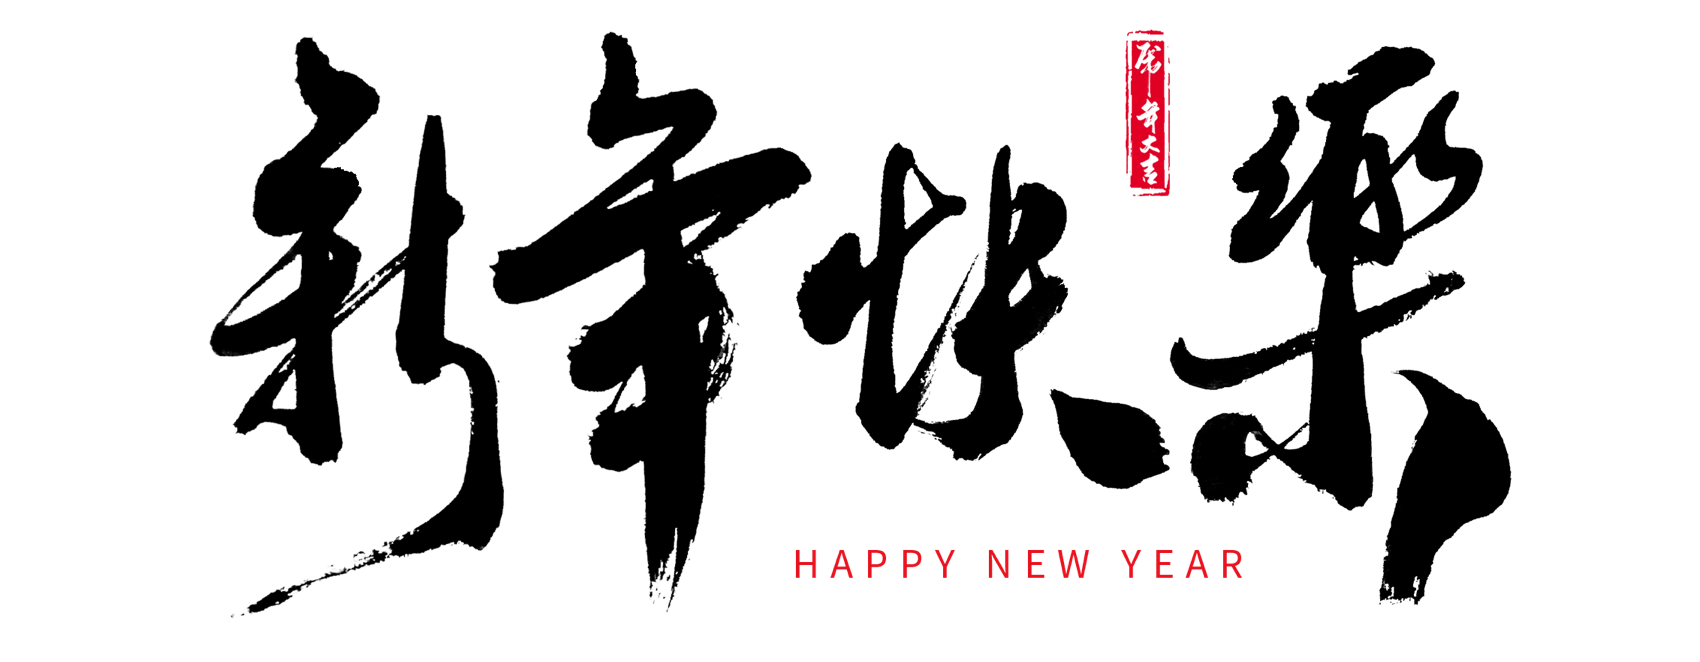 新年快樂
虎年大吉
HAPPY NEW YEAR